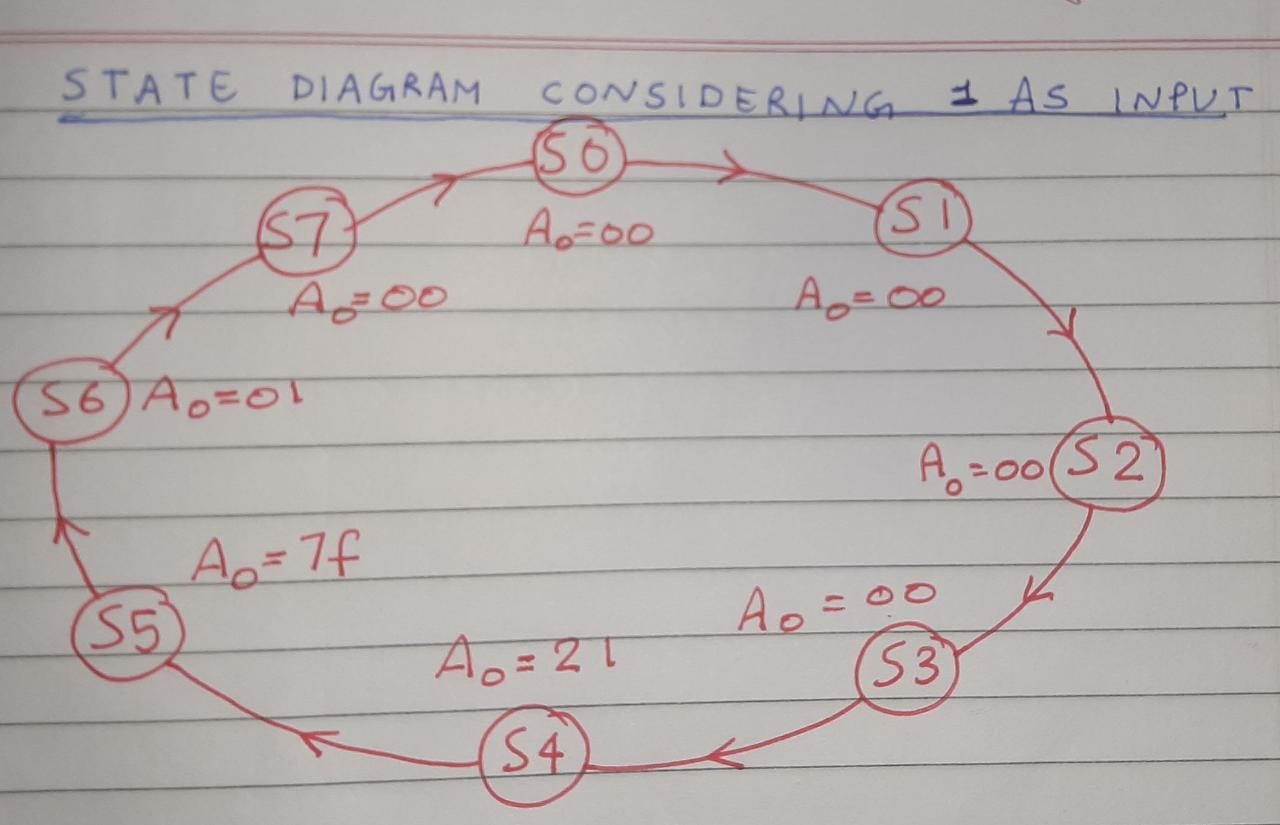 STATE DIAGRAM CONSIDERING 1 AS INPUT
S0
A0=00
S1
A0=00
S2
A0=00
S3
A0=00
S4
A0=21
S5
A0=7f
S6
A0=01
S7
A0=00